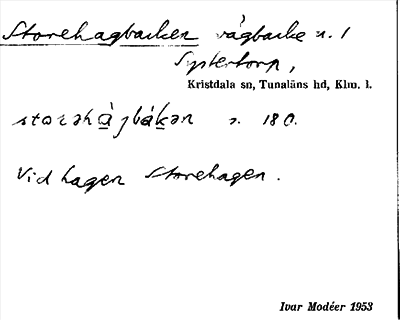 Storehagbacken vägbacke n. 1
Systertorp,
Kristdala sn, Tunaläns hd, Klm. l.
s. 180.
Vid hagen Storehagen.
Ivar Modéer 1953